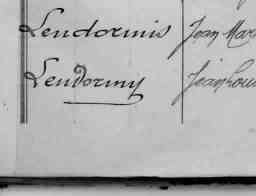 Lendormis Jean Mar
Lendormy Jean Loui